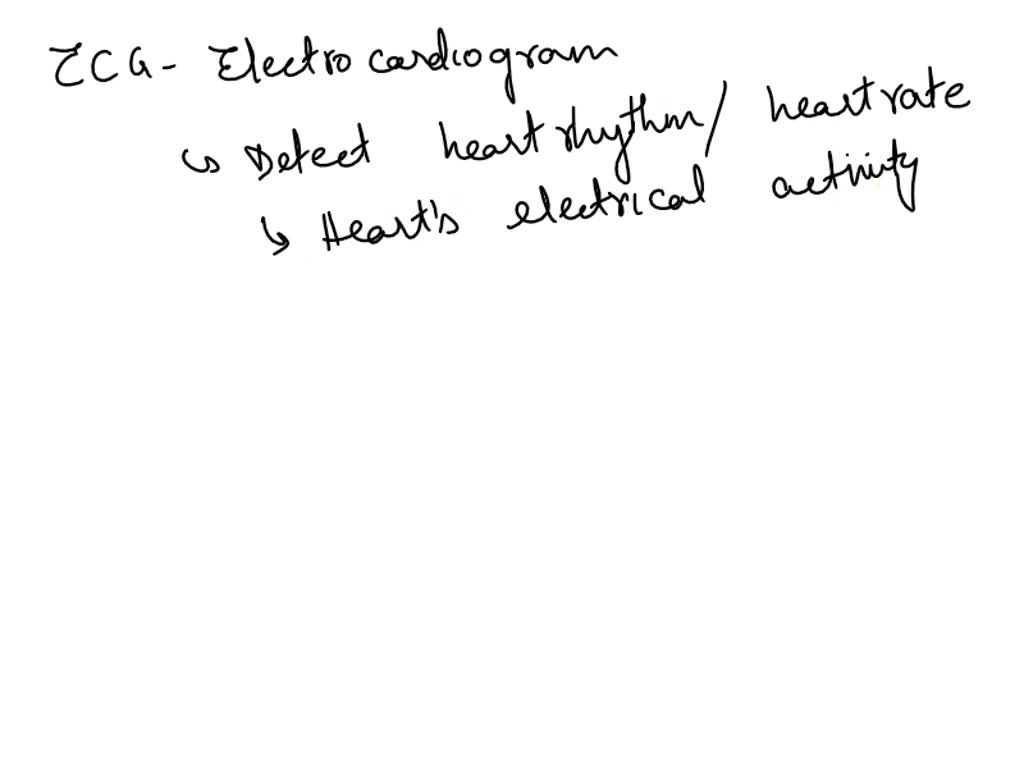 ECG - Electrocardiogram
↳ Detect heart rhythm / heart rate
↳ Heart's electrical activity